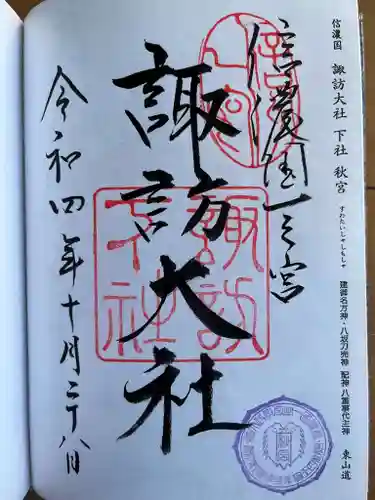 信濃国 諏訪大社 下社 秋宮
すわたいしゃしもしゃ
建御名方神・八坂刀売神 配神 八重事代主神
東山道
信濃國一之宮
諏訪大社
諏訪
下社
令和四年十月二十八日